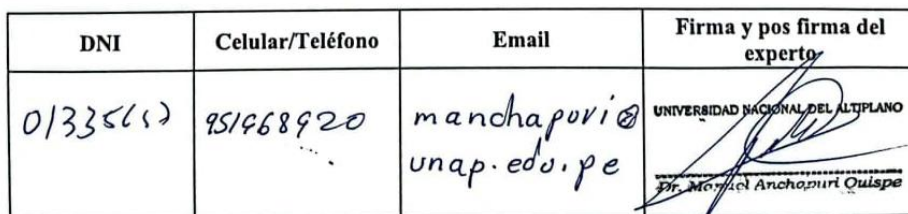 DNI
Celular/Teléfono
Email
Firma y pos firma del
experto
951968920
manchapuri@
unap.edu.pe
UNIVERSIDAD NACIONAL DEL ALTIPLANO
Dr. Manuel Anchapuri Quispe